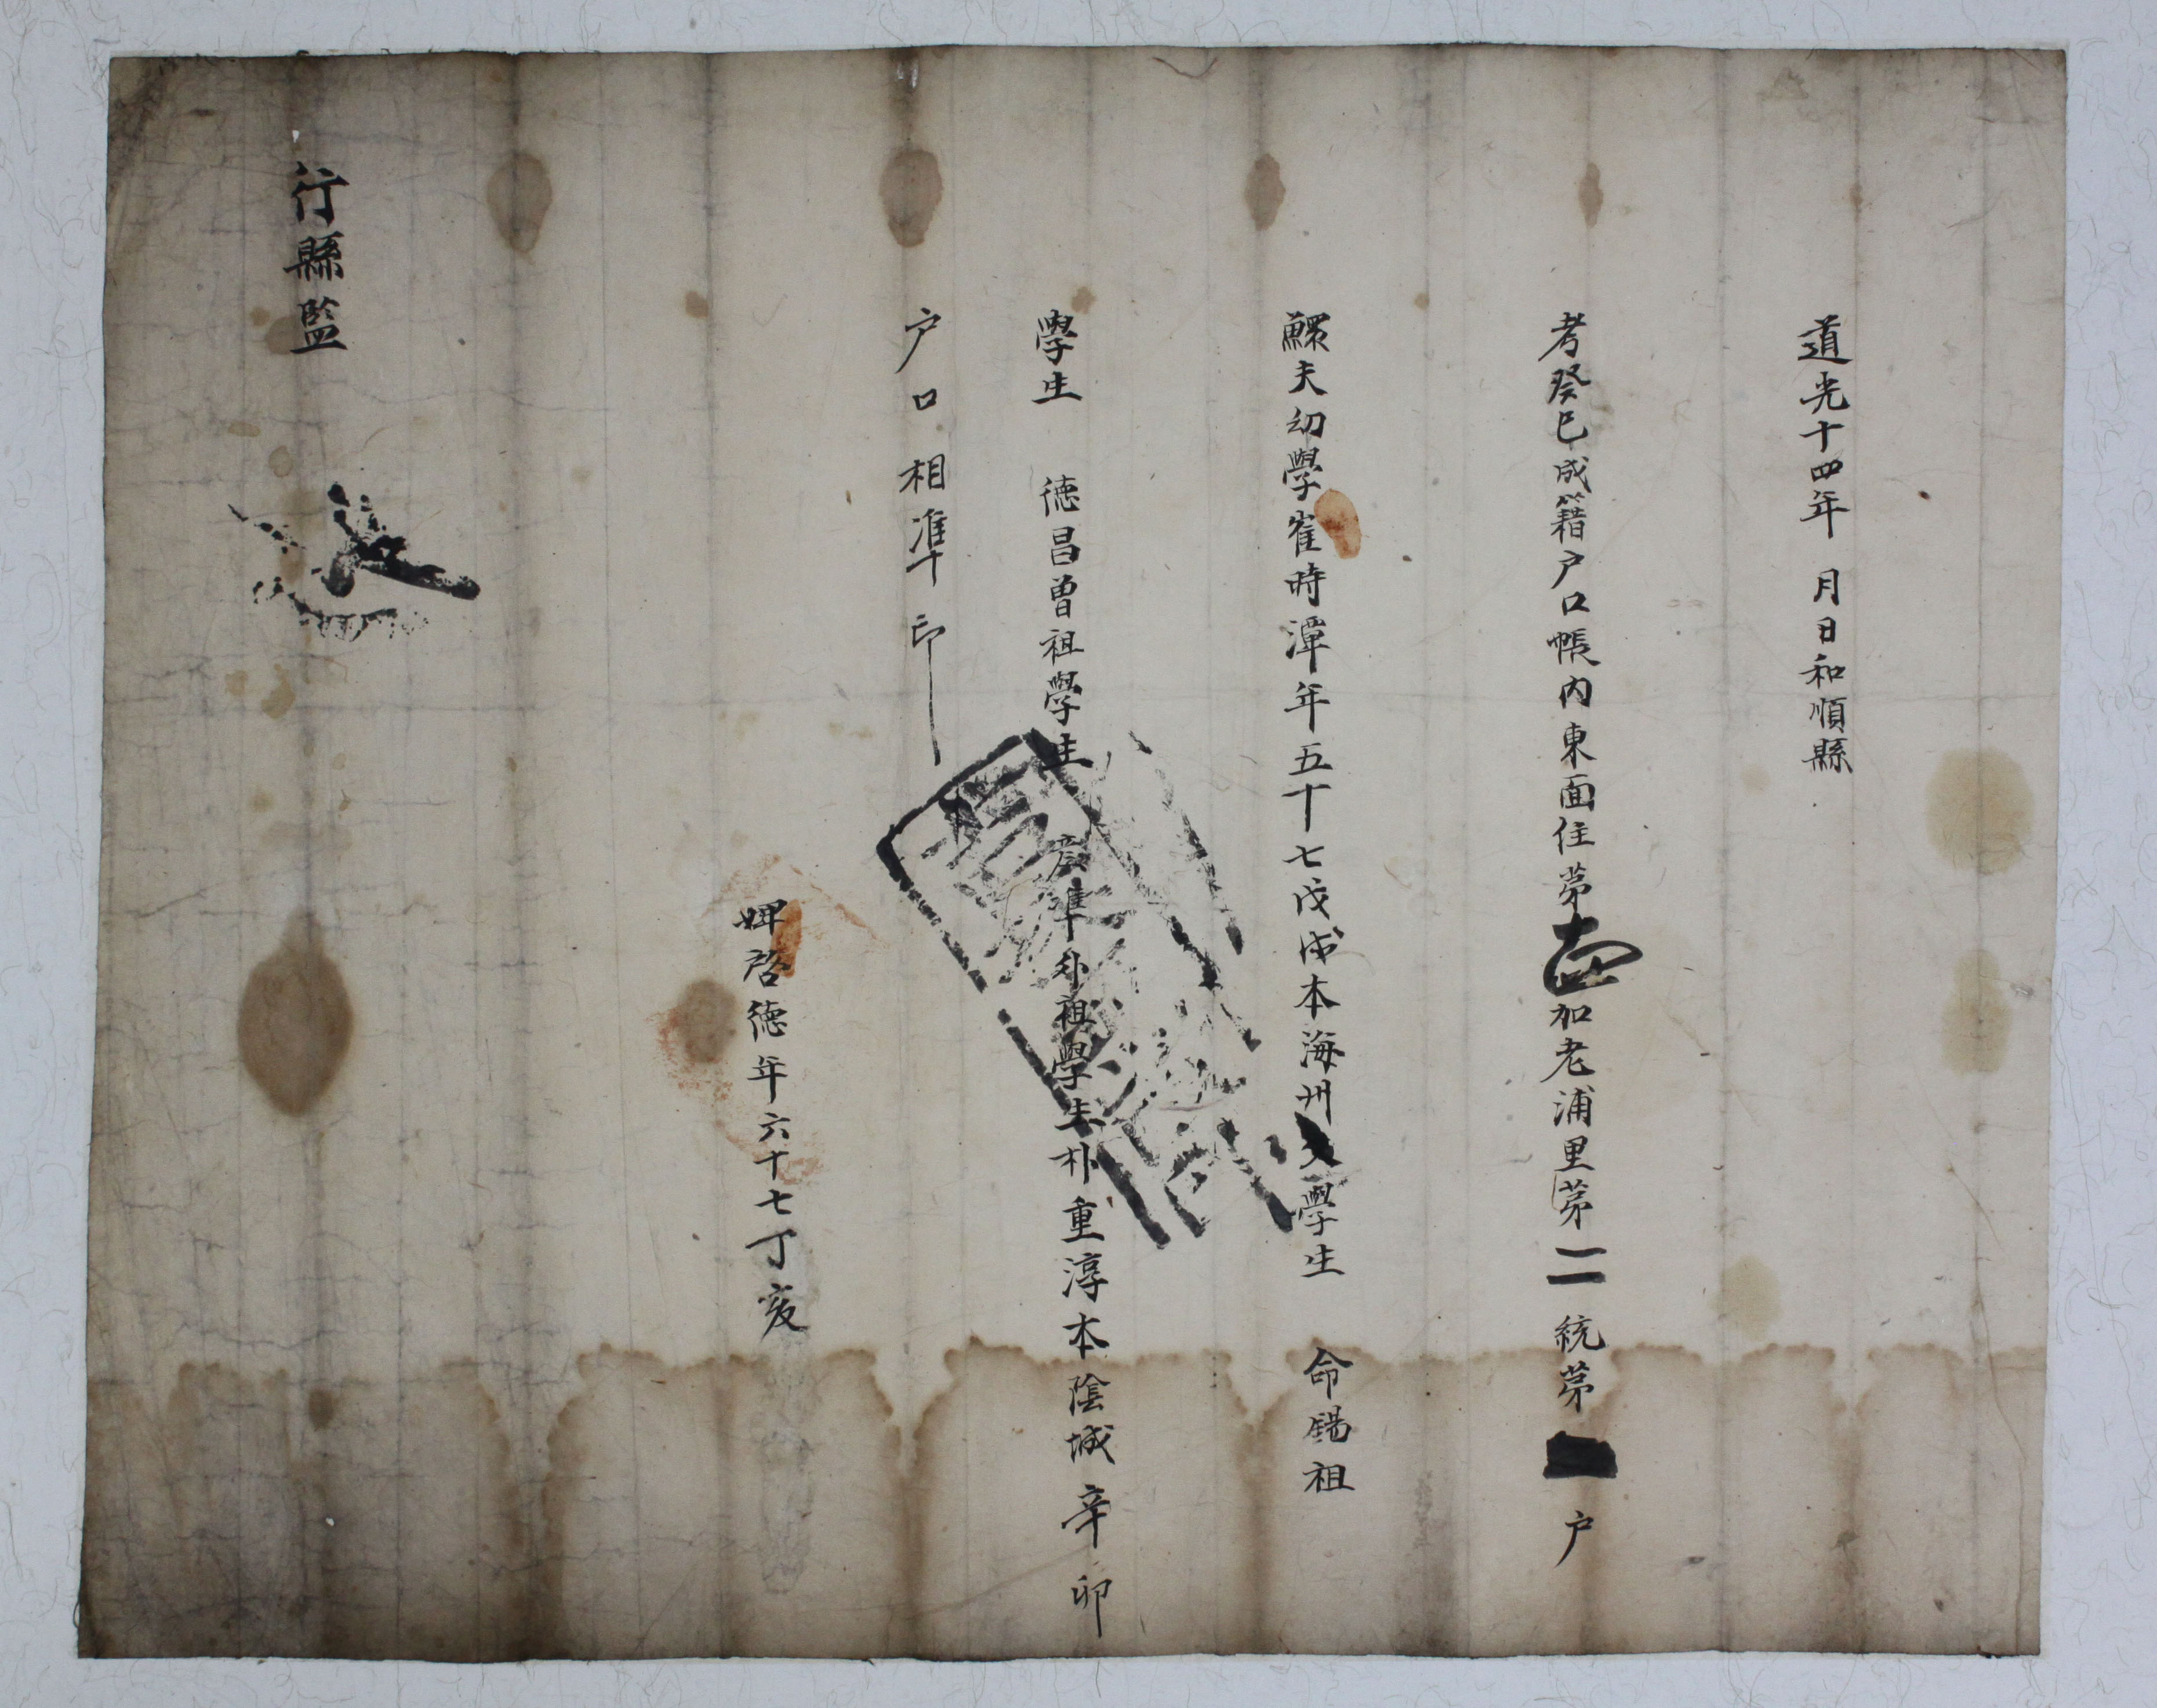 道光十四年 月日和順縣
考癸巳成籍户口帳内東面住第壹加老浦里第二統第 户
鰥夫幼學崔時潭年五十七戊戌本海州父學生 命錫祖
學生 德昌曾祖學生 廣準外祖學生朴重淳本陰城辛卯
户口相準印
婢啓德年六十七丁亥
行縣監